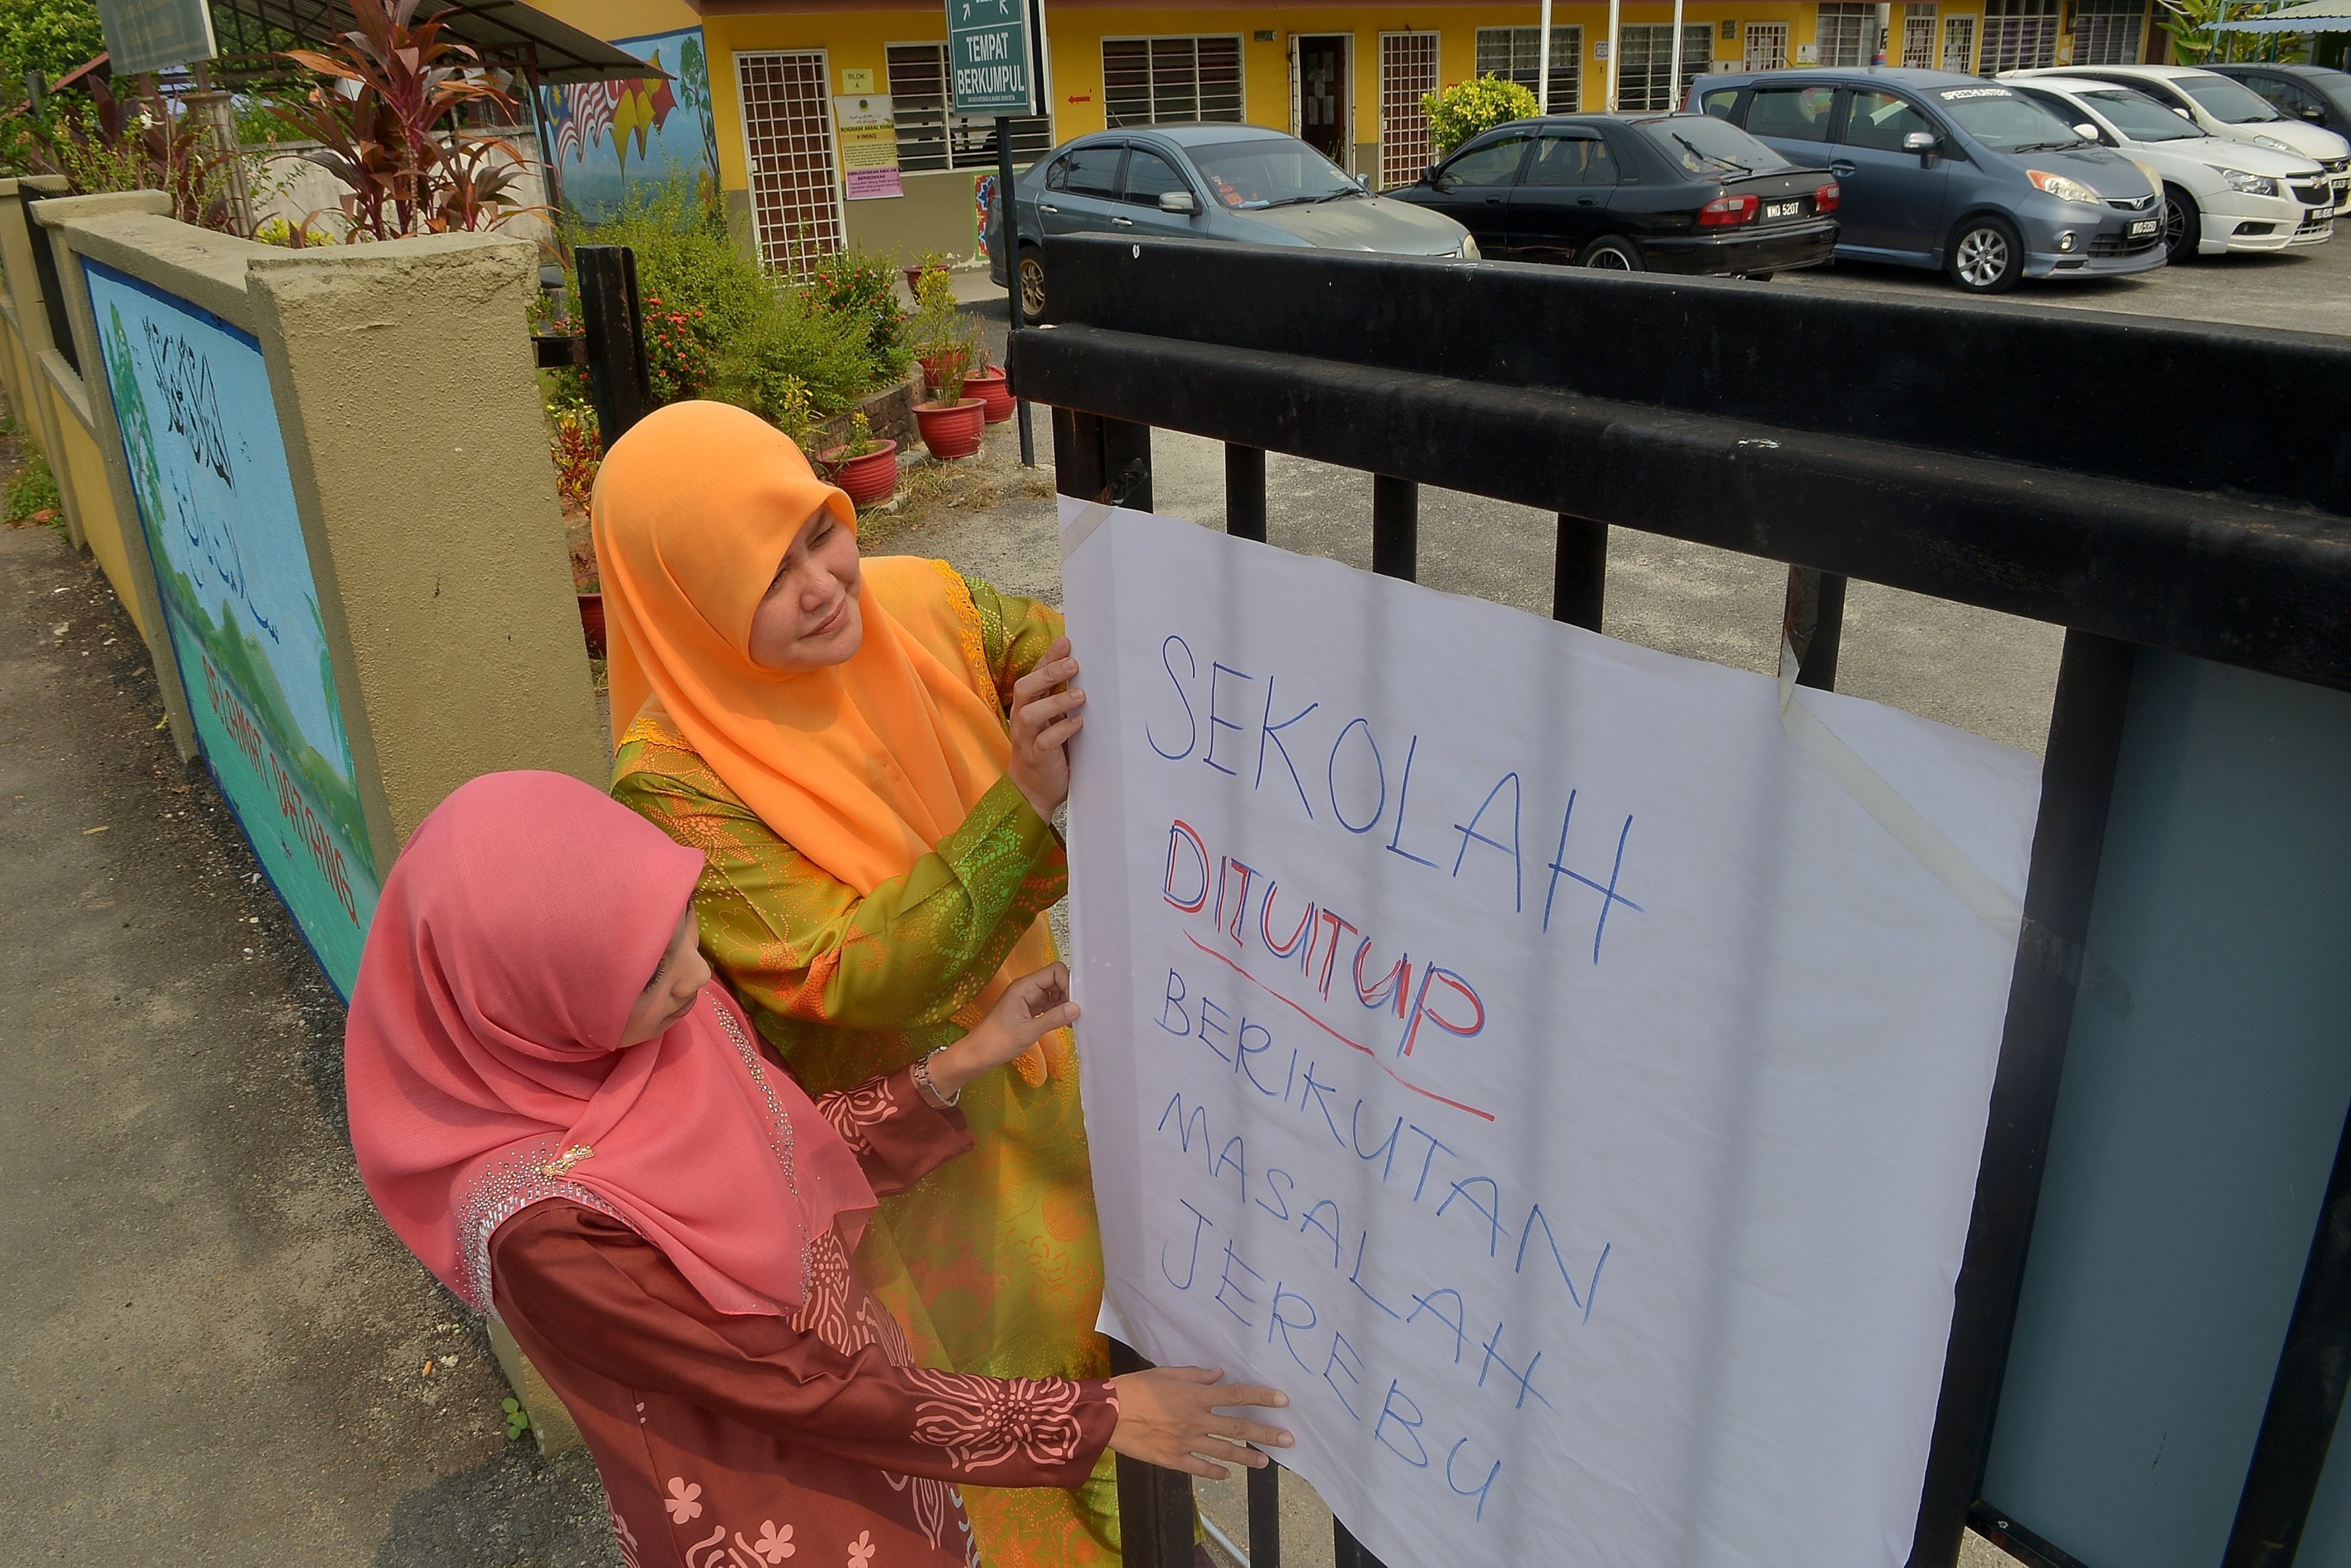 TEMPAT
BERKUMPUL
BLOK
A
PROGRAM AMAL KHAIR
SPEEDHUNTERS
WMQ 5207
SELAMAT DATANG
SEKOLAH
DITUTUP
BERIKUTAN
MASALAH
JEREBU